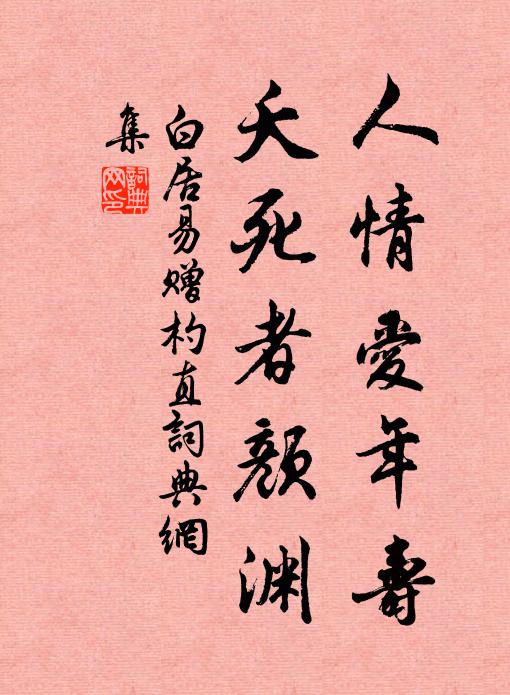 人情愛年壽
夭死者顏渊
白居易赠杓直詞典網
集
詞典
网印